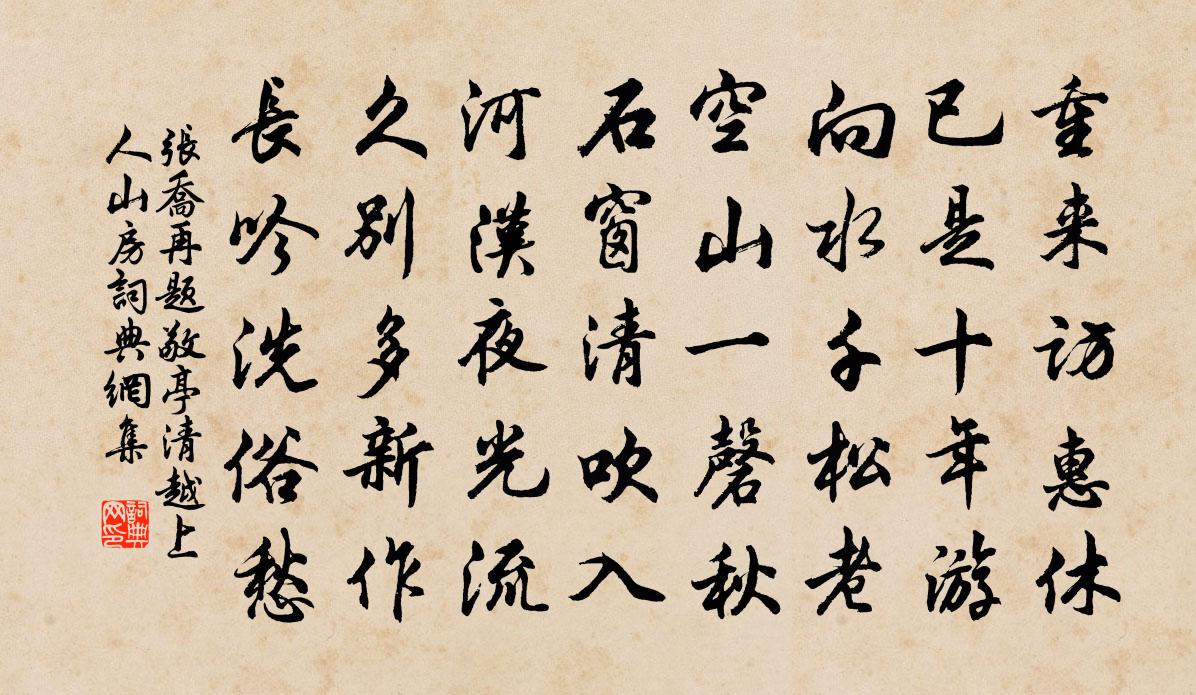 重来访惠休
已是十年游
向水千松老
空山一磬秋
石窗清吹入
河漢夜光流
久别多新作
長吟洗俗愁
張喬再题敬亭清越上
人山房詞典網集
詞典
网印